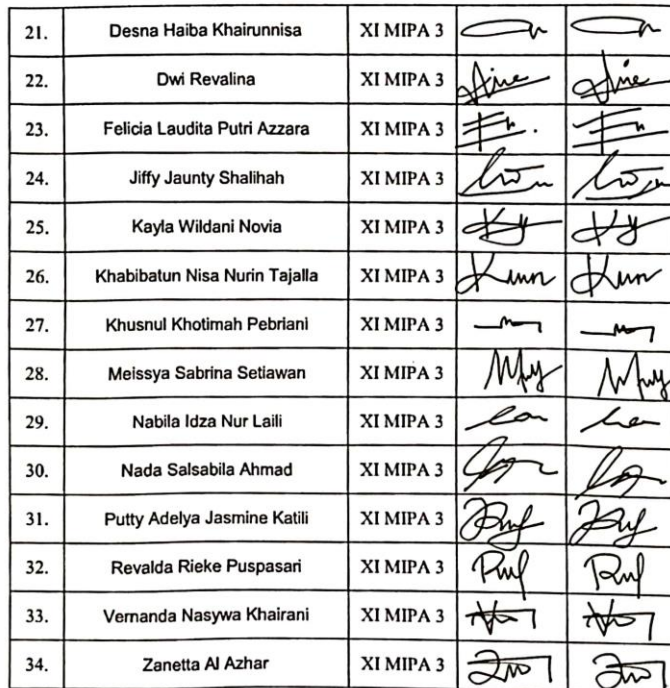 21. Desna Haiba Khairunnisa XI MIPA 3
22. Dwi Revalina XI MIPA 3
23. Felicia Laudita Putri Azzara XI MIPA 3
24. Jiffy Jaunty Shalihah XI MIPA 3
25. Kayla Wildani Novia XI MIPA 3
26. Khabibatun Nisa Nurin Tajalla XI MIPA 3
27. Khusnul Khotimah Pebriani XI MIPA 3
28. Meissya Sabrina Setiawan XI MIPA 3
29. Nabila Idza Nur Laili XI MIPA 3
30. Nada Salsabila Ahmad XI MIPA 3
31. Putty Adelya Jasmine Katili XI MIPA 3
32. Revalda Rieke Puspasari XI MIPA 3
33. Vernanda Nasywa Khairani XI MIPA 3
34. Zanetta Al Azhar XI MIPA 3